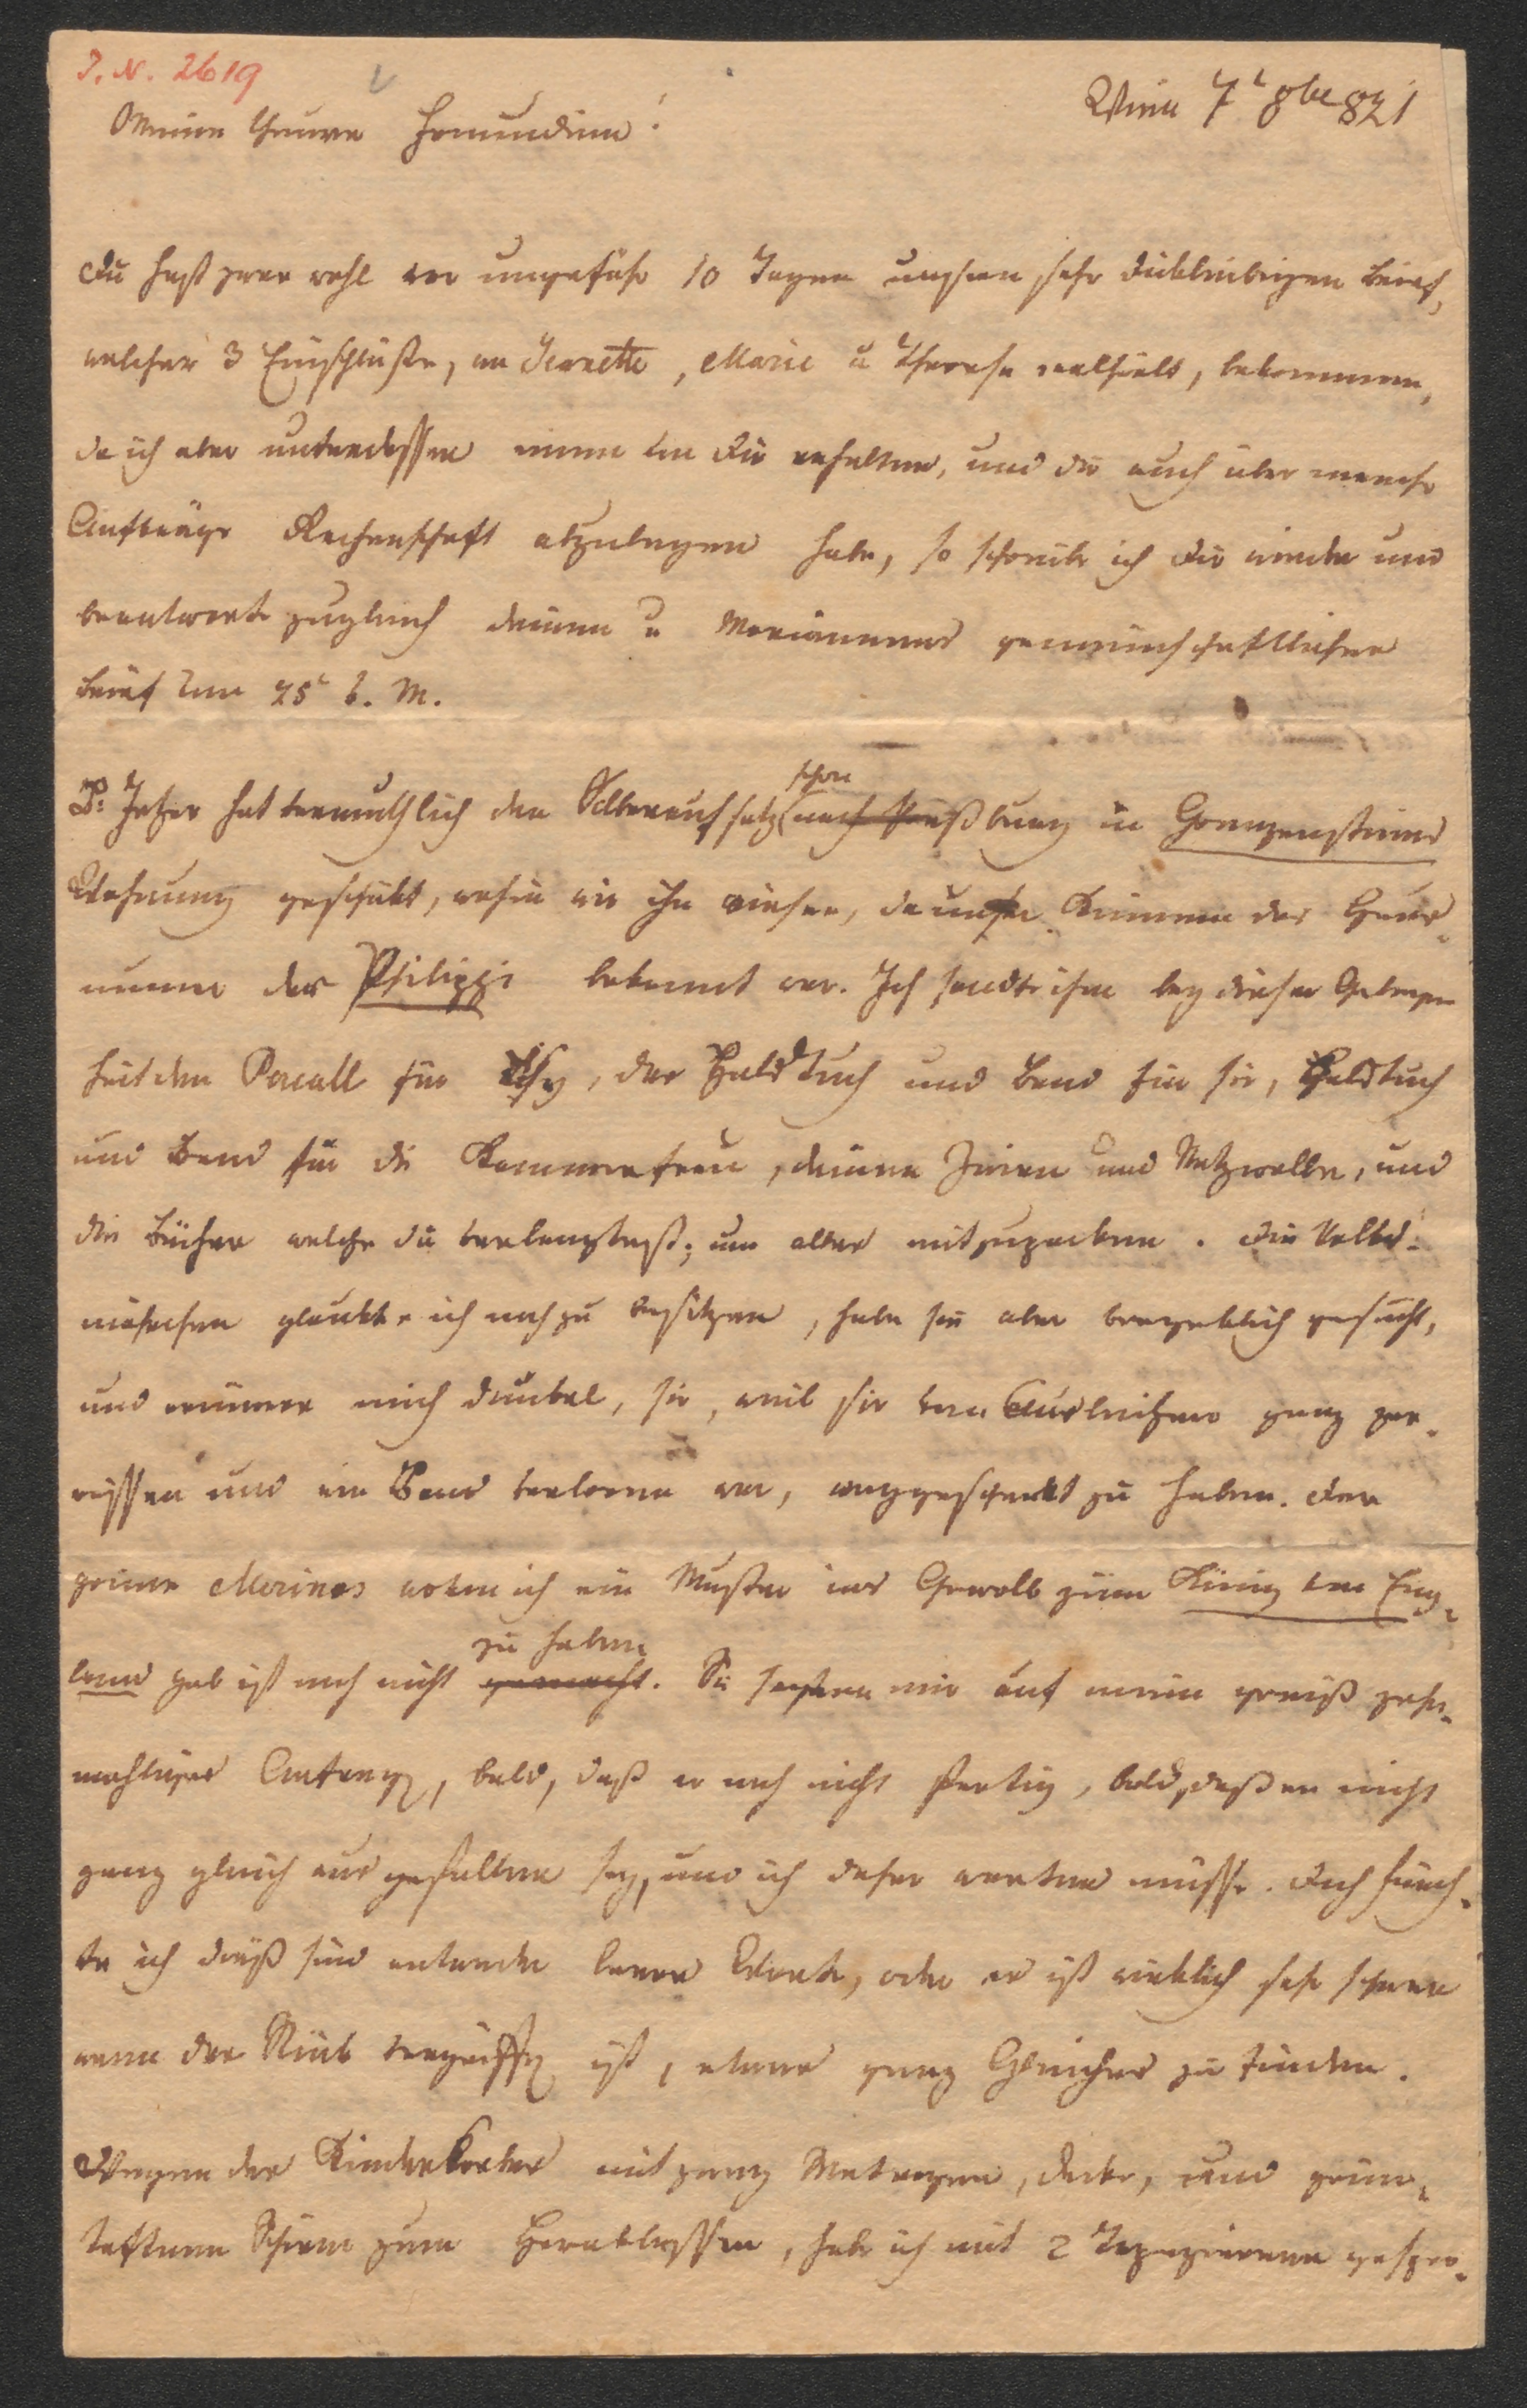 I. N. 2619
Wien 7t 8br 821
Meine theure Freundinn!
Du hast zwar wohl vor ungefähr 10 Tagen unsern sehr dickleibigen Brief,
welcher 3 Einschlüße, an Jeanette, Marie u Therese enthielt, bekommen,
da ich aber unterdessen einen von dir erhalten, und dir auch über manche
Aufträge Rechenschaft abzulegen habe, so schreib ich dir wieder und
beantworte zugleich deinen u Mariannens gemeinschaftlichen
Brief vom 25t v. M.
P: hat vermuthlich den Silberaufsatz schon nach Preßburg in Granzensteins
Wohnung geschickt, wohin wir ihn wiesen, da unser Keinem der Haus
numer der Philippi bekannt war. Ich sandte ihm bey dieser Gelegen
heit den Percall für, das Halstuch und Band für sie, Halstuch
und Band für die Kammerfrau, deinen Zwirn und Netzwolle, und
die Bücher welche du verlangtest, um alles mitzupacken. Die Volks-
mährchen glaubte ich noch zu besitzen, habe sie aber vergeblich gesucht,
und erinnere mich dunkel, sie, weil sie vom Ausleihen ganz zer-
rissen und ein Band verloren war, weggeschenkt zu haben. Der
grüne Merinos wovon ich ein Muster ins Gewölb zum König von Eng-
land gab ist noch nicht gemacht zu haben. Sie sagten mir auf mein gewiß zehn-
mahliges Anfragen, bald, daß er noch nicht fertig, bald, daß er nicht
ganz gleich ausgefallen sey, und ich daher warten müsse. Doch fürch-
te ich dieß sind entweder leere Worte, oder es ist wirklich sehr schwer
wenn das Stück vergriffen ist, etwas ganz Gleiches zu finden.
Wegen des Kinderkorbes mit ganz Matrazen, Decke, und grün-
taftenen Schirm zum Herablassen, habe ich mit 2 Tapezierern gespro-